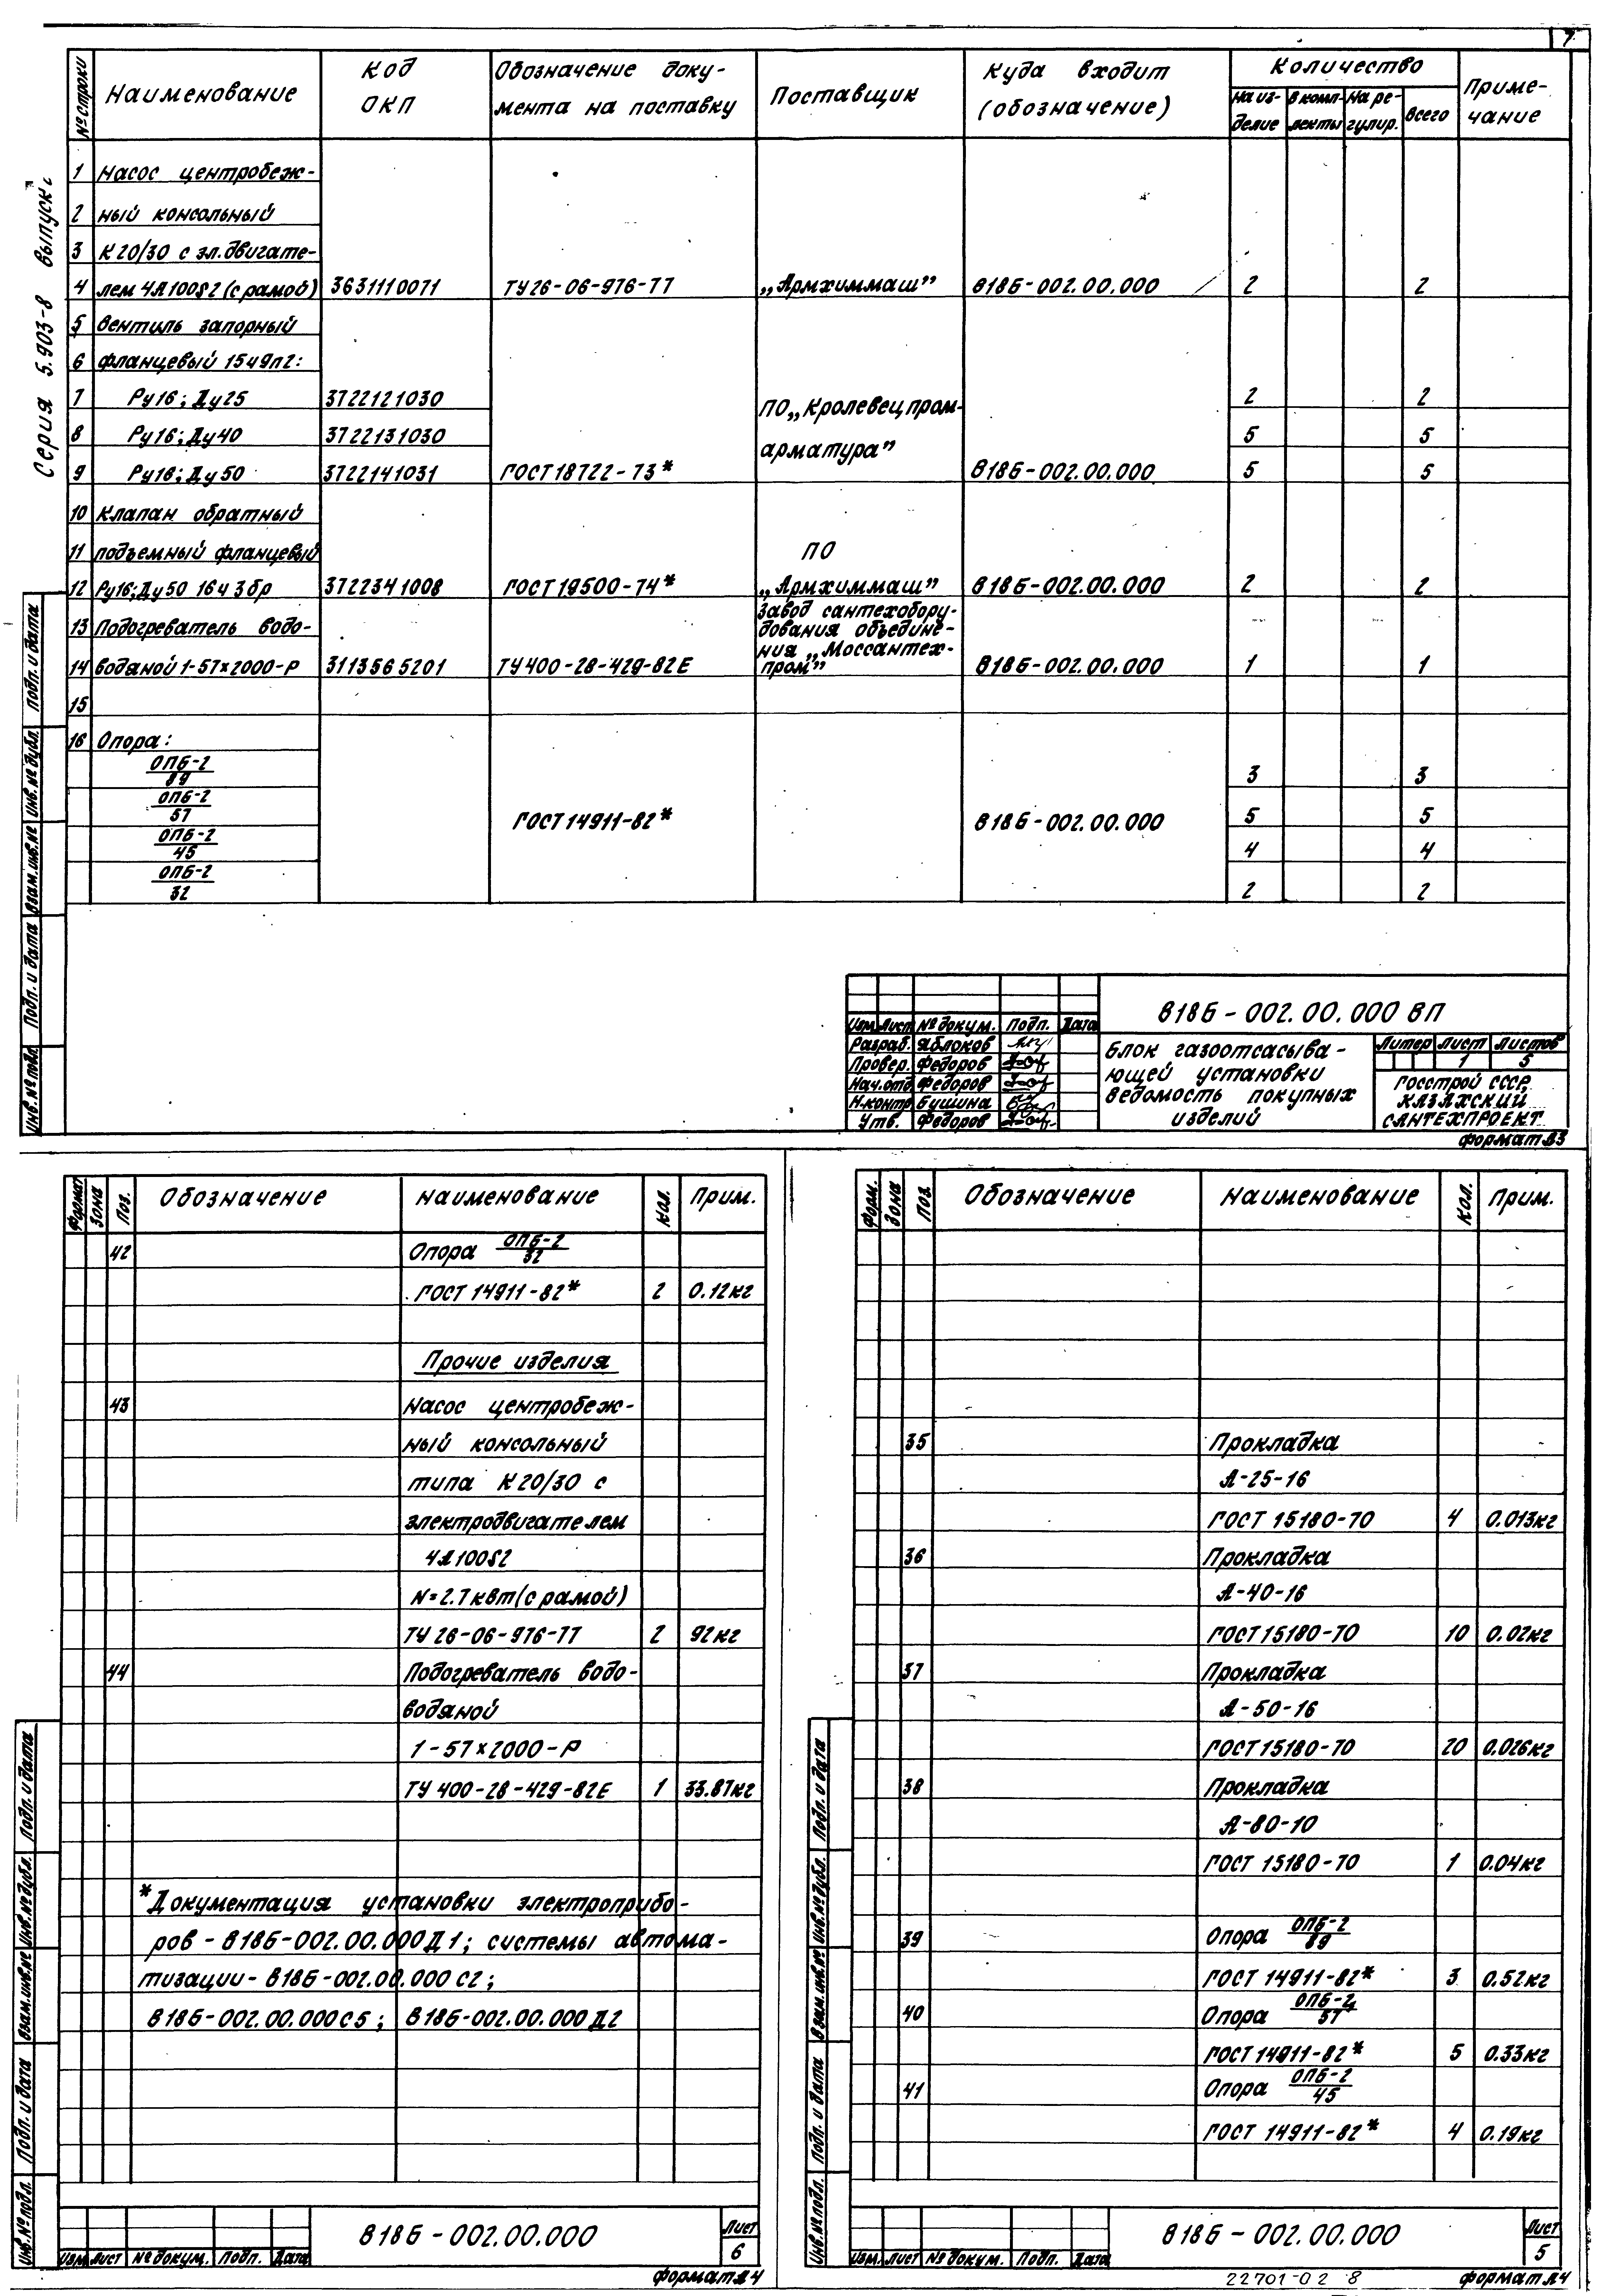 7
Серия 5.903-8 выпуск
№ строки
Наименование
Код ОКП
Обозначение доку-
мента на поставку
Поставщик
Куда входит
(обозначение)
Количество
На из-
делие
в комп-
лекты
На ре-
гулир.
всего
Приме-
чание
1 Насос центробеж-
2 ный консольный
3 К 20/30 с эл.двигате-
4 лем 4А100S2 (с рамой) 3631110071 ТУ26-06-976-77 „Армхиммаш” В18Б-002.00.000 2 2
5 Вентиль запорный
6 фланцевый 15ч9п2:
7 Ру16; Ду25 3722121030 2 2
ПО „Кролевецпром-
8 Ру16; Ду40 3722131030 5 5
арматура”
9 Ру16; Ду50 3722141031 ГОСТ 18722-73* В18Б-002.00.000 5 5
10 Клапан обратный
11 подъемный фланцевый ПО
12 Ру16; Ду50 16ч3бр 3722341008 ГОСТ 19500-74* „Армхиммаш” В18Б-002.00.000 2 2
завод сантехобору-
13 Подогреватель водо-
дования объедине-
ния „Моссантех-
14 водяной 1-57×2000-Р 3113565201 ТУ400-28-429-82Е пром” В18Б-002.00.000 1 1
15
16 Опора:
ОПБ-2
89 3 3
ОПБ-2
57 ГОСТ 14911-82* В18Б-002.00.000 5 5
ОПБ-2
45 4 4
ОПБ-2
32 2 2
Инв.№ подл. Подп. и дата Взам.инв.№ Инв.№ дубл. Подп. и дата
В18Б-002.00.000 ВП
Изм. Лист № докум. Подп. Дата
Разраб. Яблоков
Провер. Федоров
Нач.отд. Федоров
Н.контр. Бушина
Утв. Федоров
Блок газоотсасыва-
ющей установки
Ведомость покупных
изделий
Литер Лист Листов
1 5
Госстрой СССР
КАЗАХСКИЙ
САНТЕХПРОЕКТ
Формат А3
Формат Зона Поз. Обозначение Наименование Кол. Прим.
42 Опора ОПБ-2
32
ГОСТ 14911-82* 2 0.12кг
Прочие изделия
43 Насос центробеж-
ный консольный
типа К 20/30 с
электродвигателем
4А100S2
N=2.7 квт (с рамой)
ТУ 26-06-976-77 2 92кг
44 Подогреватель водо-
водяной
1-57×2000-Р
ТУ 400-28-429-82Е 1 33.87кг
*Документация установки электроприбо-
ров - В18Б-002.00.000Д1; системы автома-
тизации - В18Б-002.00.000 С2;
В18Б-002.00.000 С5; В18Б-002.00.000 Д2
Инв.№ подл. Подп. и дата Взам.инв.№ Инв.№ дубл. Подп. и дата
Изм. Лист № докум. Подп. Дата
В18Б-002.00.000
Лист
6
Формат А4
Форм. Зона Поз. Обозначение Наименование Кол. Прим.
35 Прокладка
А-25-16
ГОСТ 15180-70 4 0.013кг
36 Прокладка
А-40-16
ГОСТ 15180-70 10 0.02кг
37 Прокладка
А-50-16
ГОСТ 15180-70 20 0.026кг
38 Прокладка
А-80-10
ГОСТ 15180-70 1 0.04кг
39 Опора ОПБ-2
89
ГОСТ 14911-82* 3 0.52кг
40 Опора ОПБ-2
57
ГОСТ 14911-82* 5 0.33кг
41 Опора ОПБ-2
45
ГОСТ 14911-82* 4 0.19кг
Инв.№ подл. Подп. и дата Взам.инв.№ Инв.№ дубл. Подп. и дата
Изм. Лист № докум. Подп. Дата
В18Б-002.00.000
Лист
5
22701-02 8
Формат А4